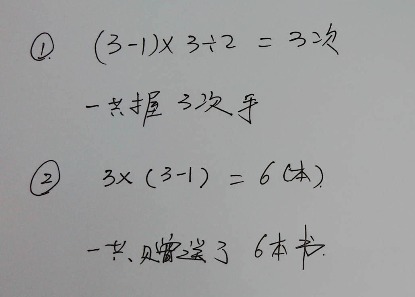 ① (3-1)×3÷2=3次
一共握3次手
② 3×(3-1)=6(本)
一共赠送了6本书.